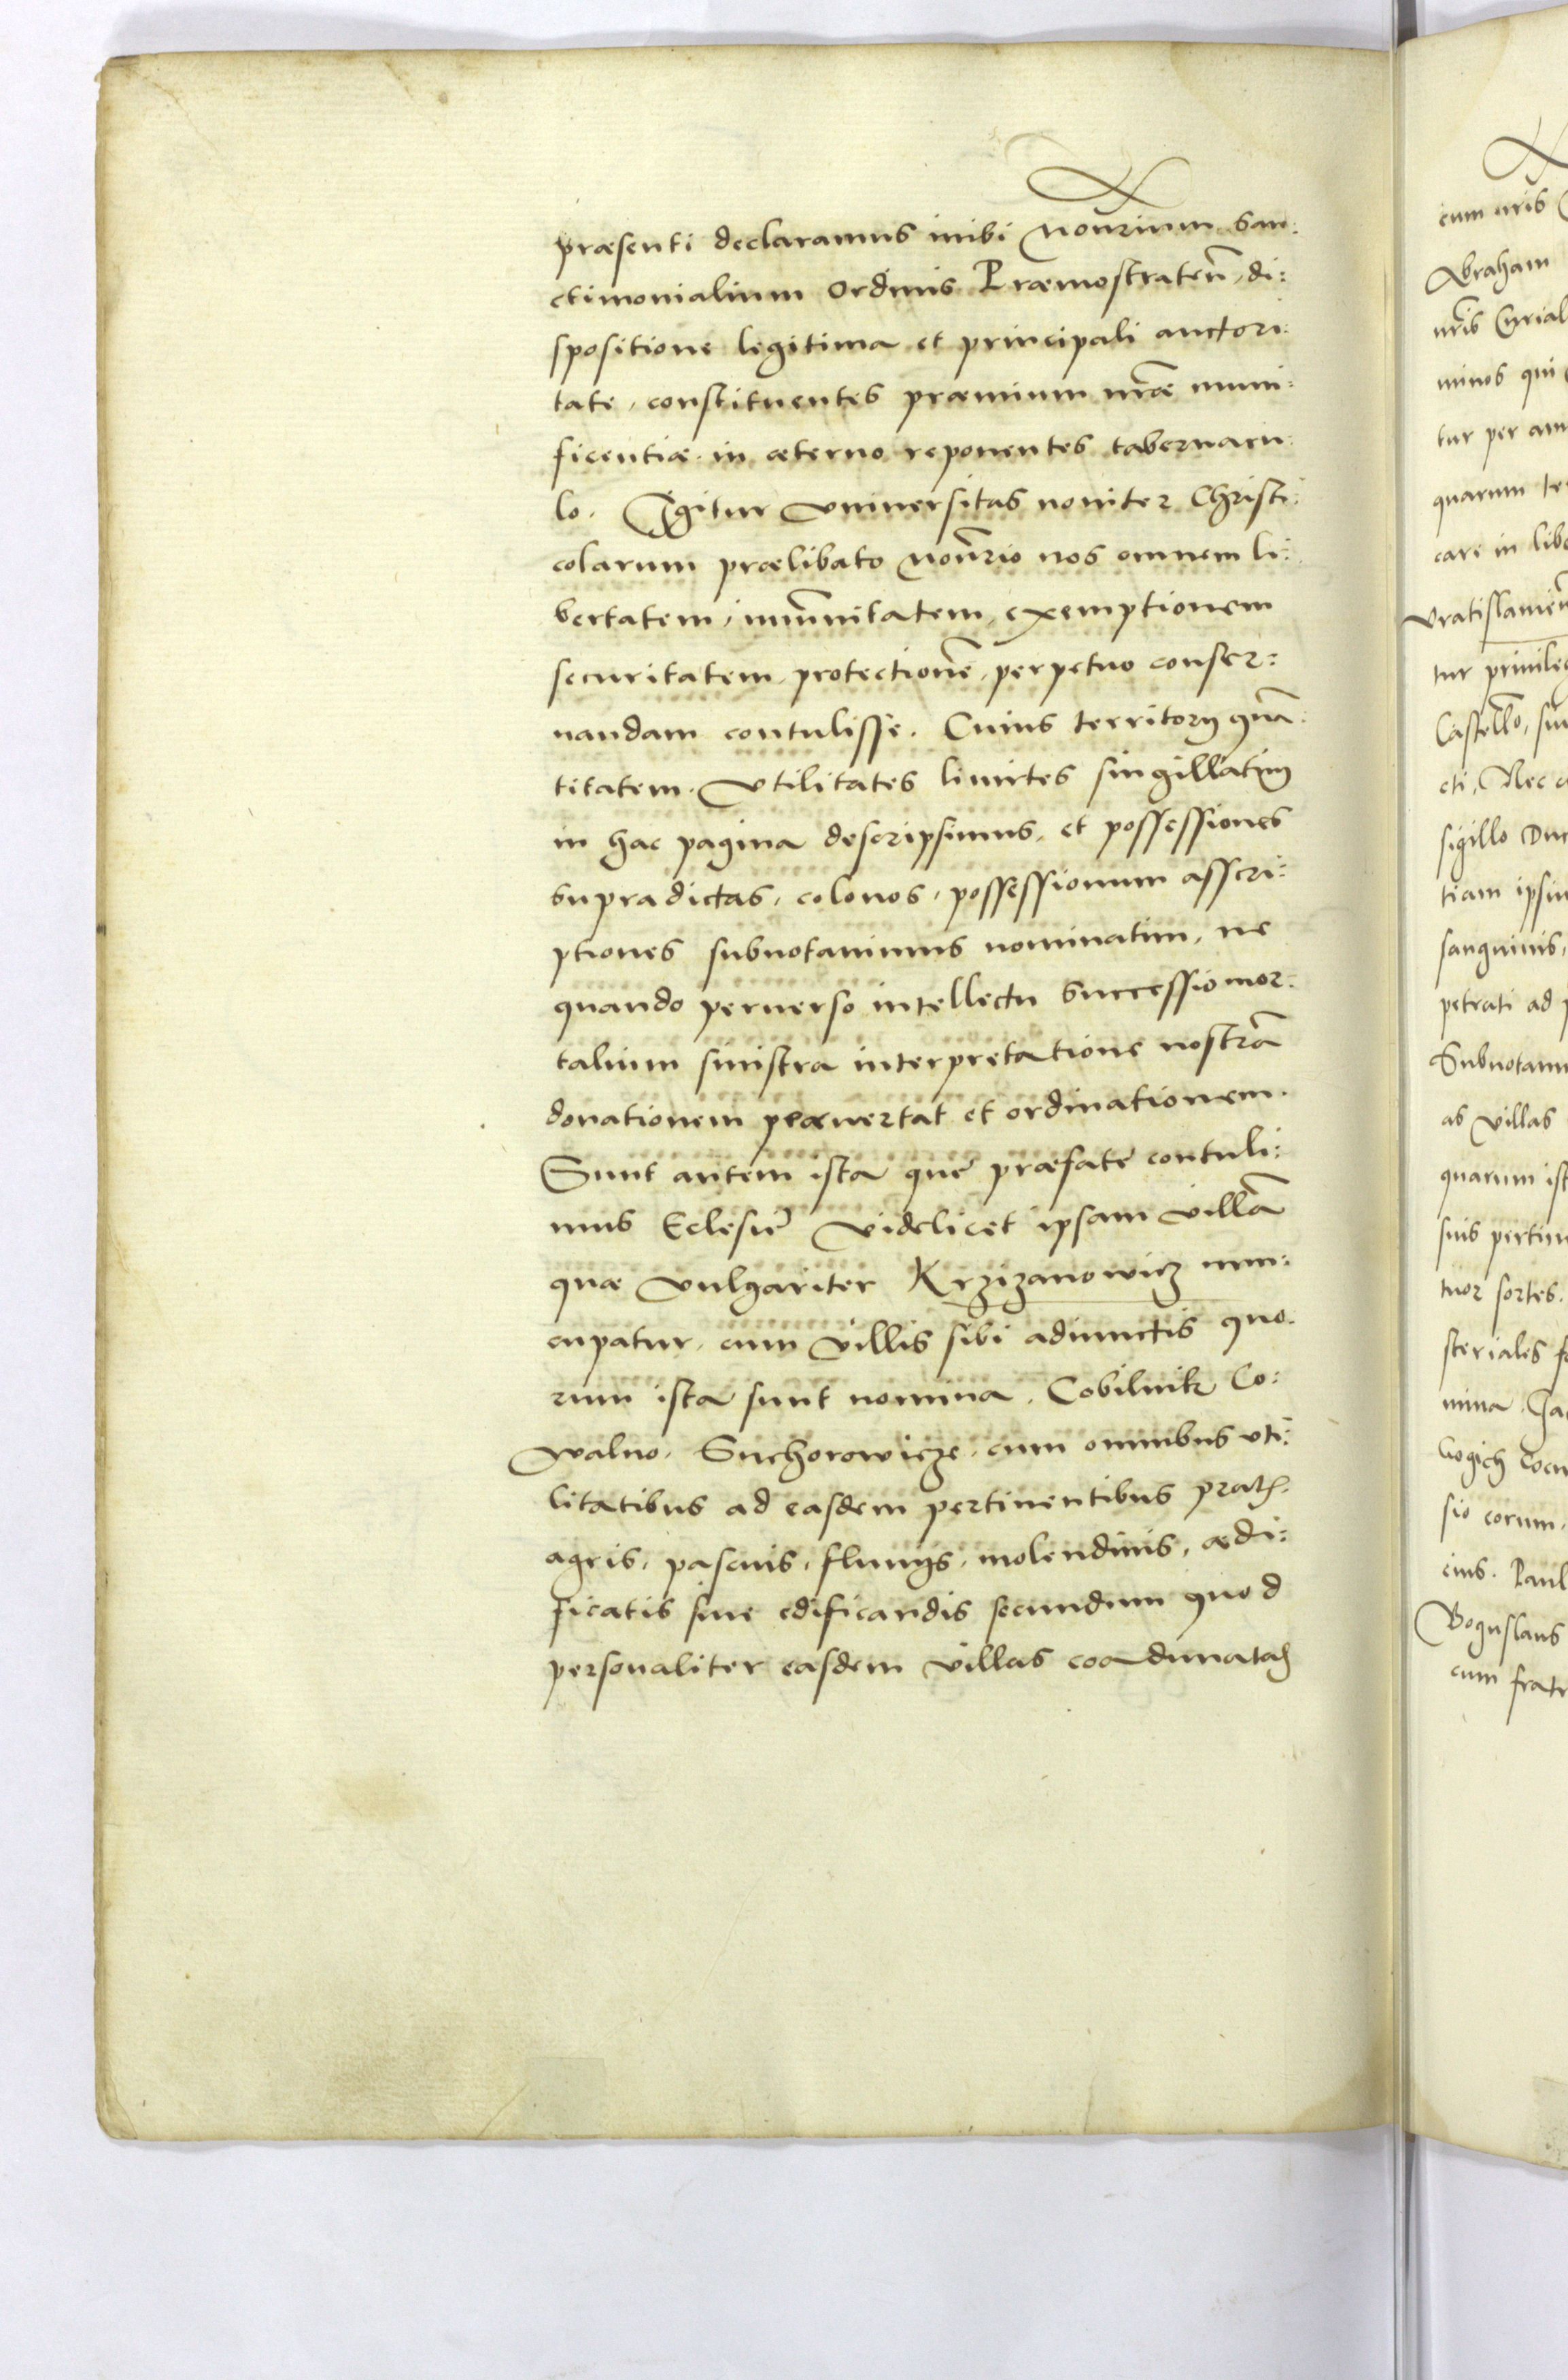 præsenti declaramus inibi Mon̄rium San:
ctimonialium Ordinis Præmostrateñ, di:
spositione legitima et principali auctori:
tate, constituentes præmium nr̃æ muni:
ficentiæ in æterno reponentes tabernacu:
lo. Igitur Vniuersitas nouiter Christi:
colarum prælibato Mon̄rio nos omnem li:
bertatem, im̃unitatem, exemptionem
securitatem, protectionẽ, perpetuo conser:
uandam contulisse. Cuius territorij quã:
titatem. Vtilitates limites singillatim
in hac pagina descripsimus, et possessiones
supradictas, colonos, possessionum asscri:
ptiones subnotauimus nominatim, ne
quando peruerso intellectu successio mor:
talium sinistra interpretatione nostrã
donationem præuertat et ordinationem.
Sunt autem ista quę præfatę contuli:
mus Eclesię Videlicet ipsam Villã
quæ Vulgariter Krzizanowicz nun:
cupatur, cum Villis sibi adiunctis quo:
rum ista sunt nomina. Cobilnik Co:
walno. Suchorowicze, cum omnibus vti:
litatibus ad easdem pertinentibus pratis
agris, pascuis, fluuijs, molendinis, ædi:
ficatis siue edificandis secundum quod
personaliter easdem Villas coadunatas
cum nr̃is
Abraham
nr̃is
minos qui
tur per am
quarum te
care in libe
Vratislauień
tur priuile
Castello, siu
cti, Nec
sigillo Duc
tiam ipsiu
sanguinis,
petrati ad p
Subnotam
as Villas
quarum ist
suis pertin
tuor sortes.
steriales f
mina
sio eorum,
eius. Paul
Boguslaus
cum fratr